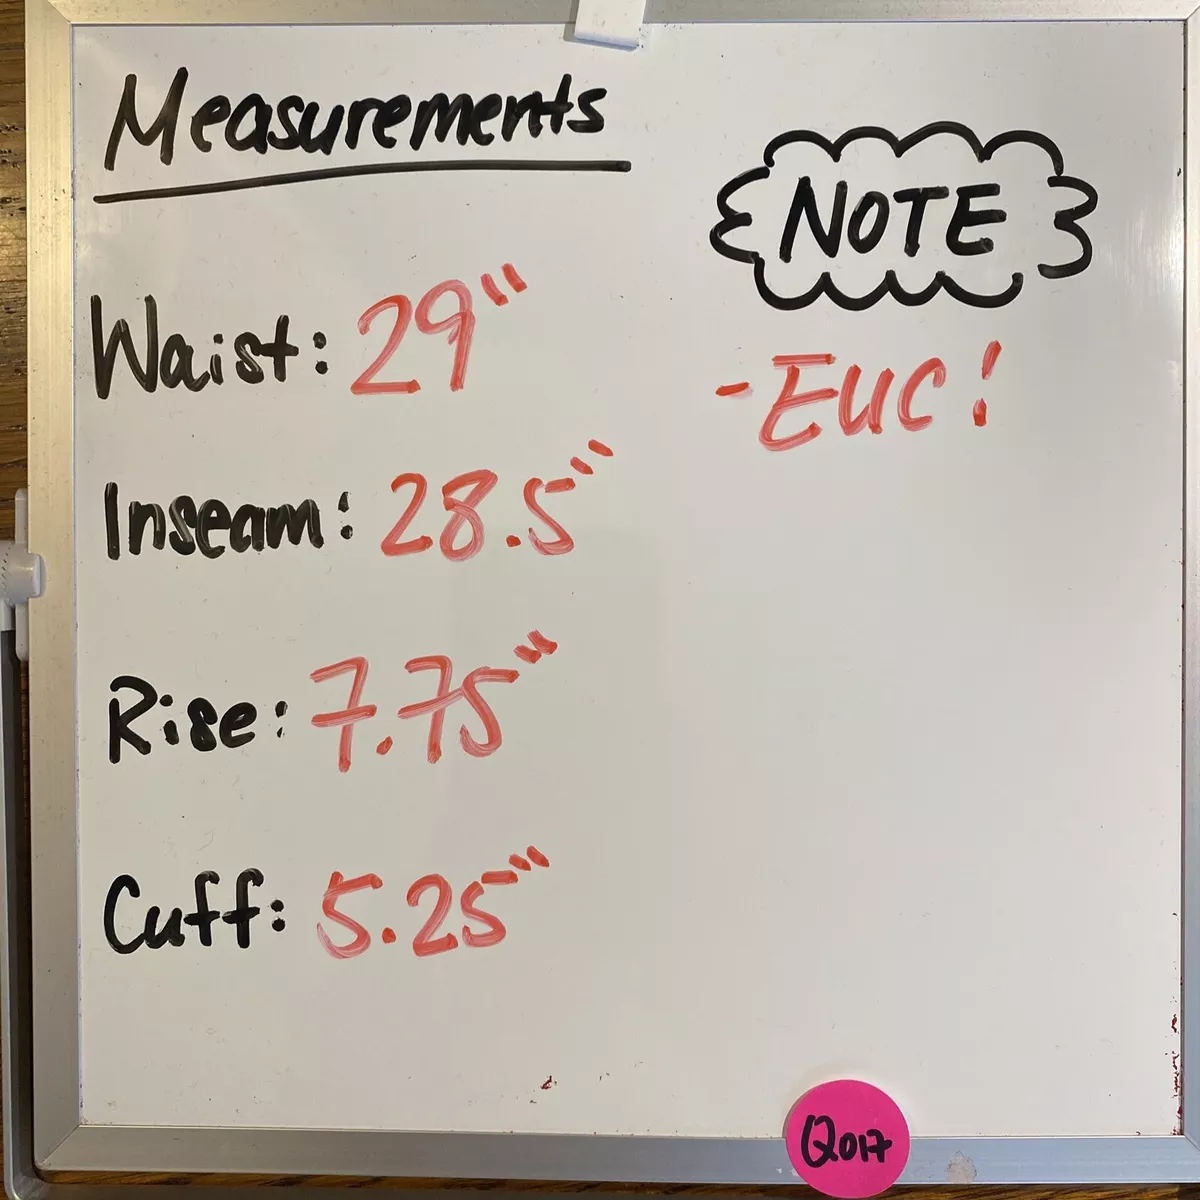 Measurements
Waist: 29"
Inseam: 28.5"
Rise: 7.75"
Cuff: 5.25"
NOTE
- EUC!
Q017